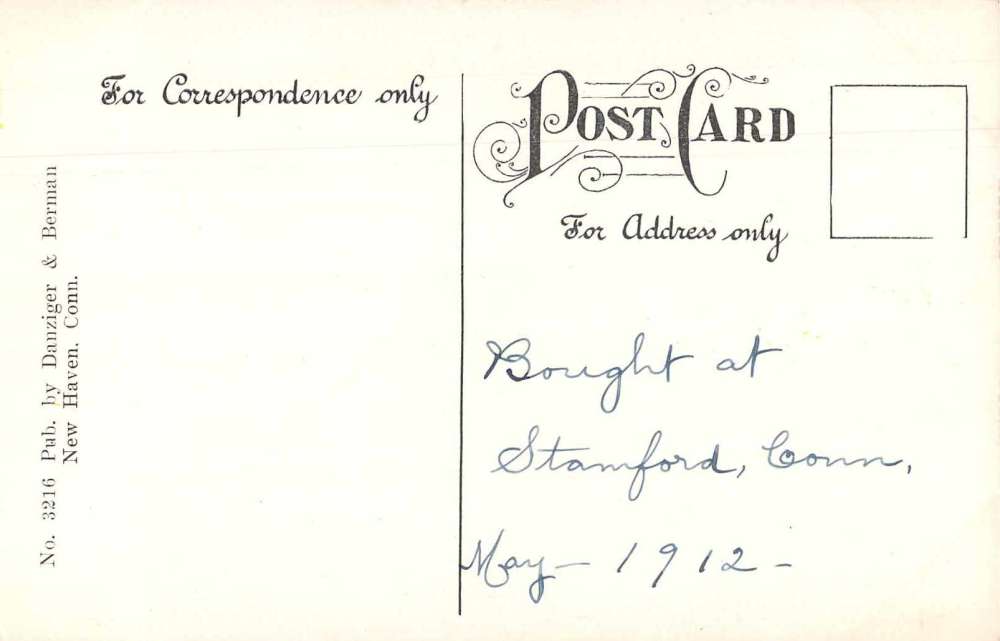 For Correspondence only
POST CARD
For Address only
No. 3216 Pub. by Danziger & Berman
New Haven. Conn.
Bought at
Stamford, Conn,
May - 1912 -